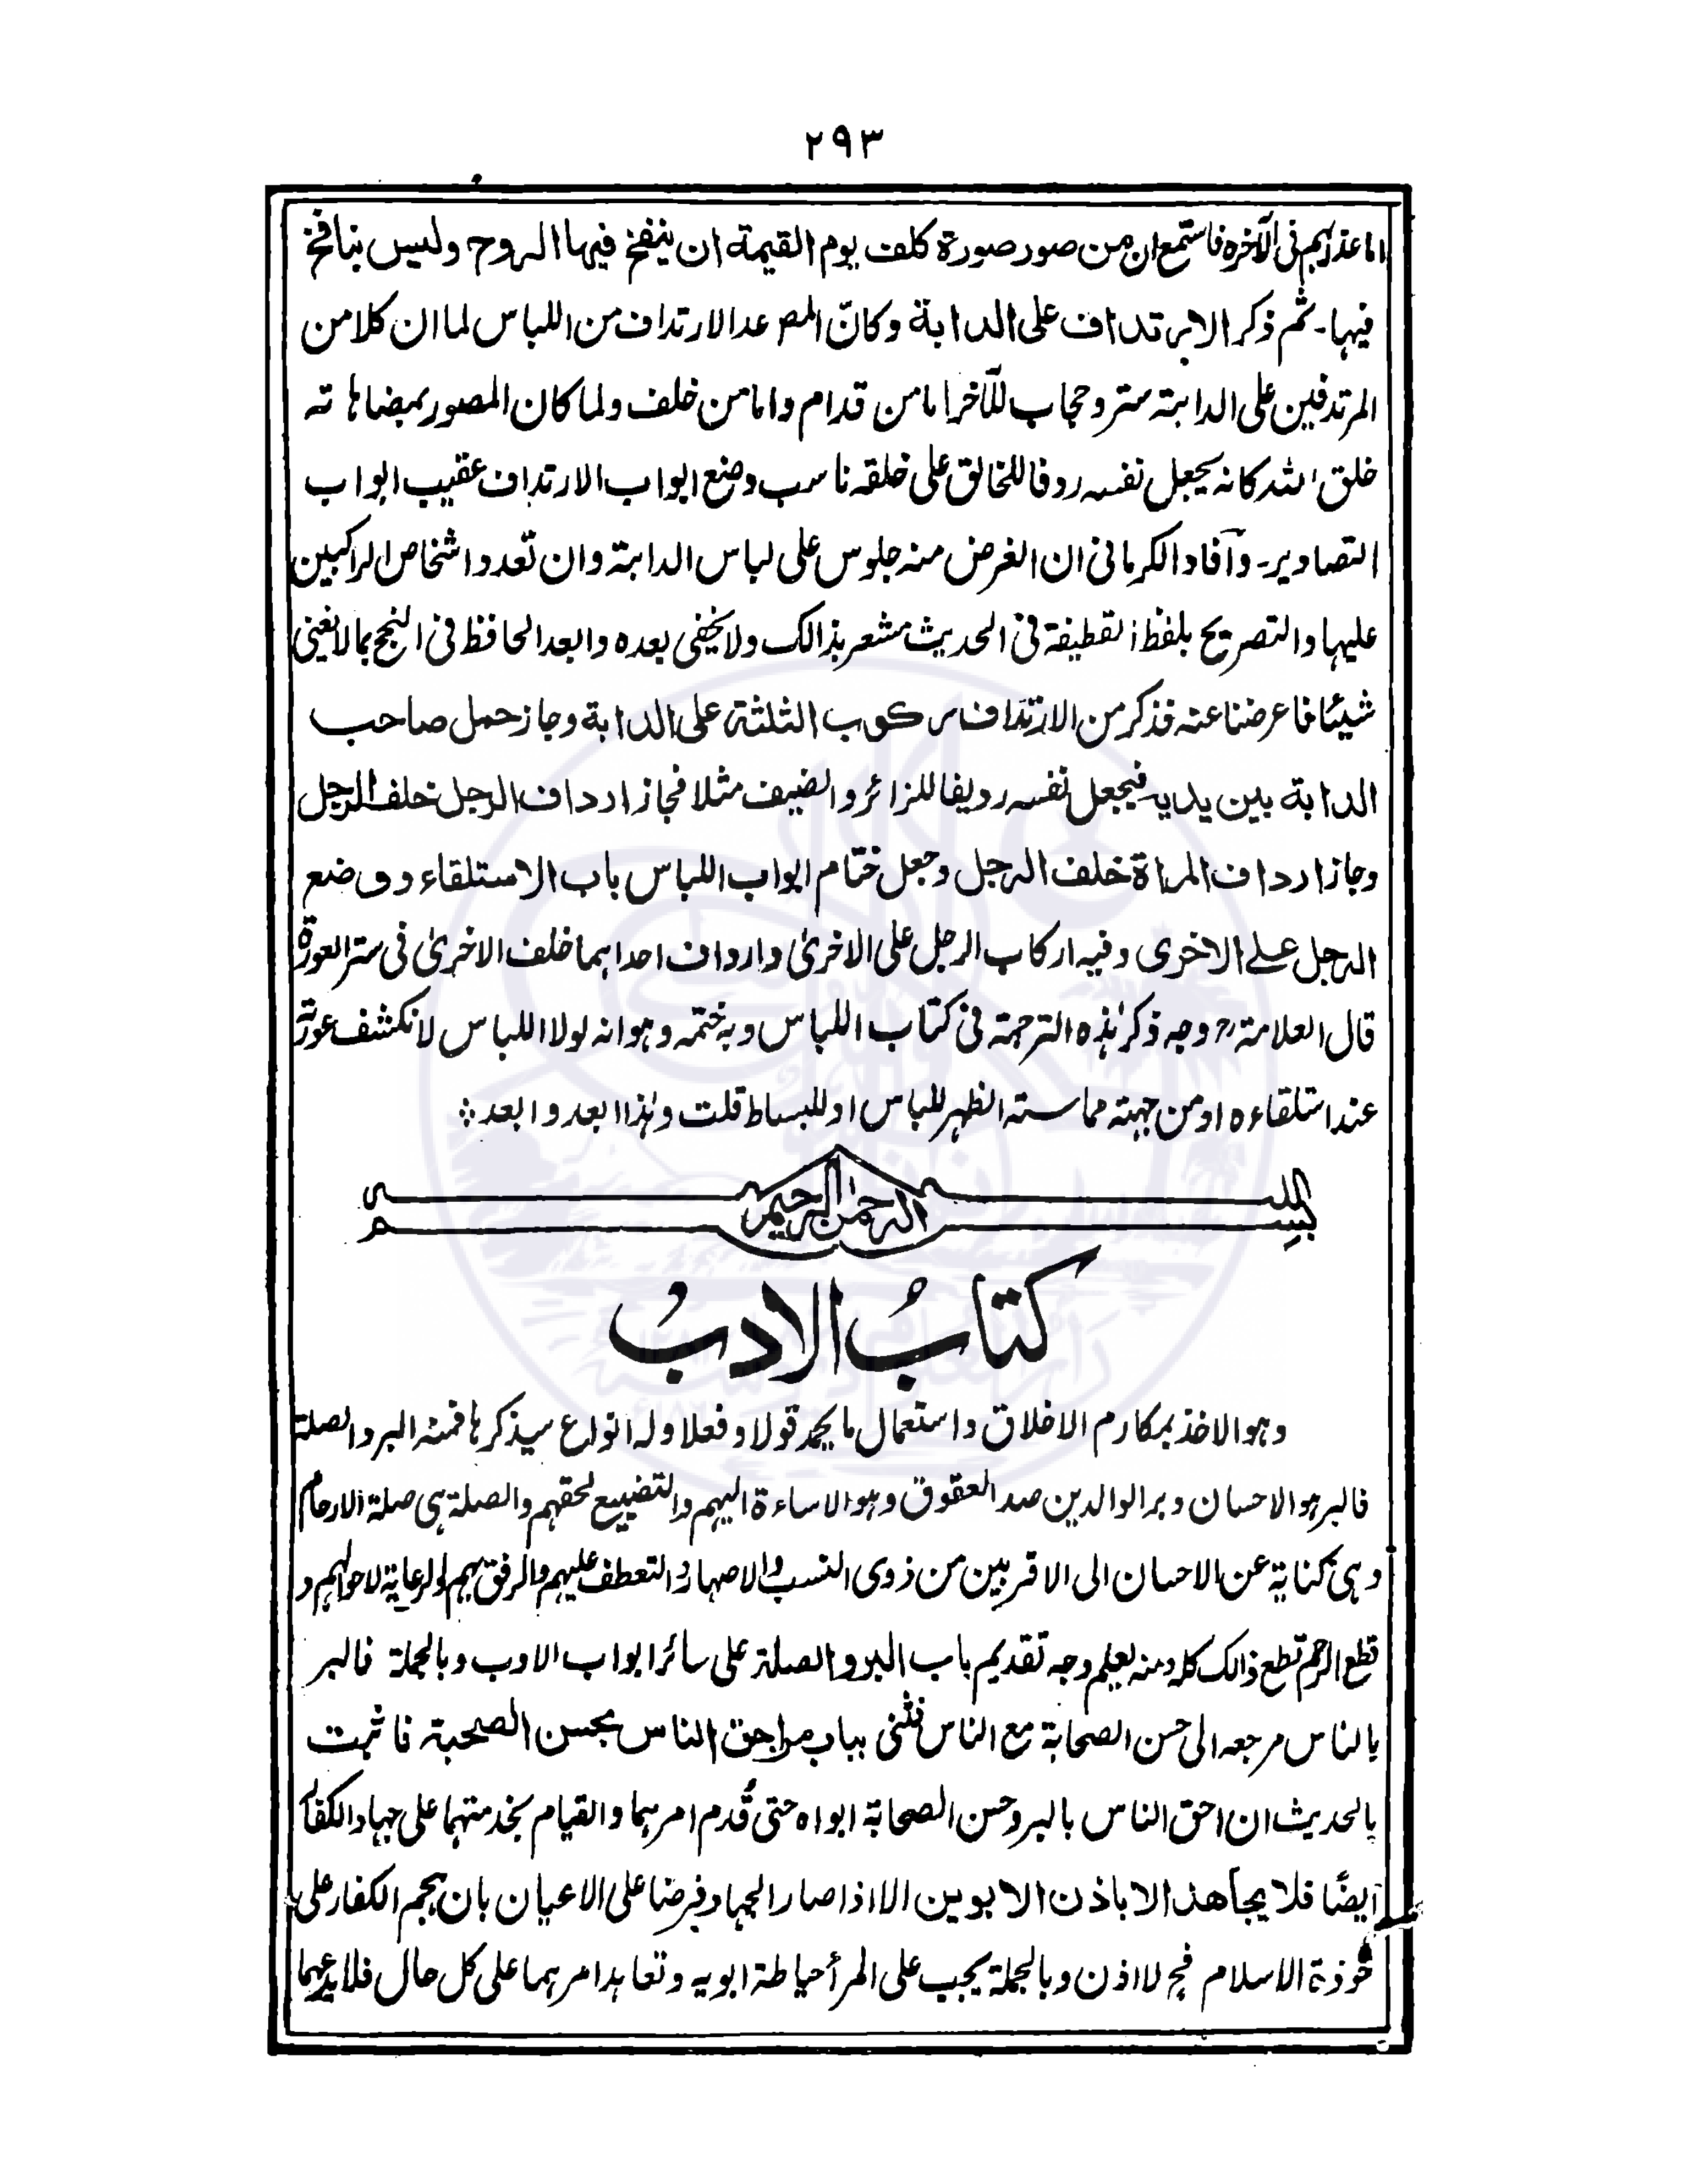 ٢٩٣
اما عذابهم فی الآخرة فاستمع ان من صور صورة کلف یوم القیمة ان ینفخ فیها الروح ولیس بنافخ
فیها۔ ثم ذکر الارتداف علی الدابة وکانّ المص عد الارتداف من اللباس لما ان کلا من
المرتدفین علی الدابة ستر وحجاب للآخر اما من قدام واما من خلف ولما کان المصور بمضاهاته
خلق الله کانه یجعل نفسه ردفا للخالق علی خلقه ناسب وضع ابواب الارتداف عقیب ابواب
التصاویر۔ وآفاد الکرمانی ان الغرض منه جلوس علی لباس الدابة وان تعدد اشخاص الراکبین
علیها والتصریح بلفظ القطیفة فی الحدیث مشعر بذالک ولا یخفی بعده وابعد الحافظ فی الفتح بما لا یغنی
شیئا فاعرضنا عنه فذکر من الارتداف رکوب الثلثة علی الدابة وجاز حمل صاحب
الدابة بین یدیه فیجعل نفسه ردیفا للزائر والضیف مثلا فجاز ارداف الرجل خلف الرجل
وجاز ارداف المرأة خلف الرجل وجعل ختام ابواب اللباس باب الاستلقاء ووضع
الرجل علے الاخری وفیه ارکاب الرجل علی الاخریٰ وارداف احداهما خلف الاخریٰ فی ستر العورة
قال العلامة رح وجه ذکر هٰذه الترجمة فی کتاب اللباس وبه ختمه وهو انه لولا اللباس لانکشف عورته
عند استلقاءه او من جهة مماسته الظهر للباس او للبساط قلت وهٰذا ابعد وابعد ؞
بسم الله الرحمٰن الرحیم
کتابُ الادبُ
وهو الاخذ بمکارم الاخلاق واستعمال ما یحمد قولا وفعلا وله انواع سیذکرها فمنه البر والصلة
فالبر هو الاحسان وبر الوالدین ضد العقوق وهو الاساءة الیهم والتضییع لحقهم والصلة هی صلة الارحام
وهی کنایة عن الاحسان الی الاقربین من ذوی النسب والاصهار والتعطف علیهم والرفق بهم والرعایة لاحوالهم و
قطع الرحم قطع ذالک کله ومنه یعلم وجه تقدیم باب البر والصلة علی سائر ابواب الادب وبالجملة فالبر
بالناس مرجعه الی حسن الصحابة مع الناس فثنی بباب من احق الناس بحسن الصحبة فاثبت
بالحدیث ان احق الناس بالبر وحسن الصحابة ابواه حتی قُدم امرهما والقیام بخدمتهما علی جهاد الکفار
ایضًا فلا یجاهد الا باذن الابوین الا اذا صار الجهاد فرضا علی الاعیان بان یهجم الکفار علی
حوذة الاسلام فح لا اذن وبالجملة یجب علی المرأ حیاطة ابویه وتعاهد امرهما علی کل حال فلا یدعهما